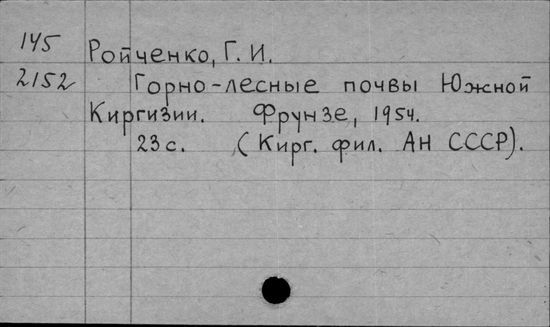 145
Ройченко, Г. И.
2152
Горно-лесные почвы Южной
Киргизии. Фрунзе, 1954.
23 с. (Кирг. фил. АН СССР).